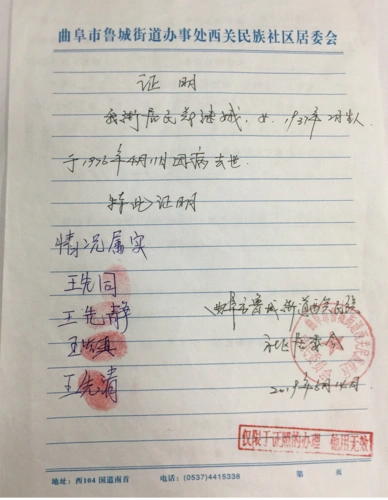 曲阜市鲁城街道办事处西关民族社区居委会
证明
我街居民郑 城，女，1937年2月生人
于1976年4月11日因病去世.
特此证明
情况属实
王先同
王先静
王 真
王先清
曲阜市鲁城街道西关民族
社区居委会
2019年5月14日
仅限于证照的办理 他用无效
地址：西104国道南首 电话：(0537)4415338 第 页